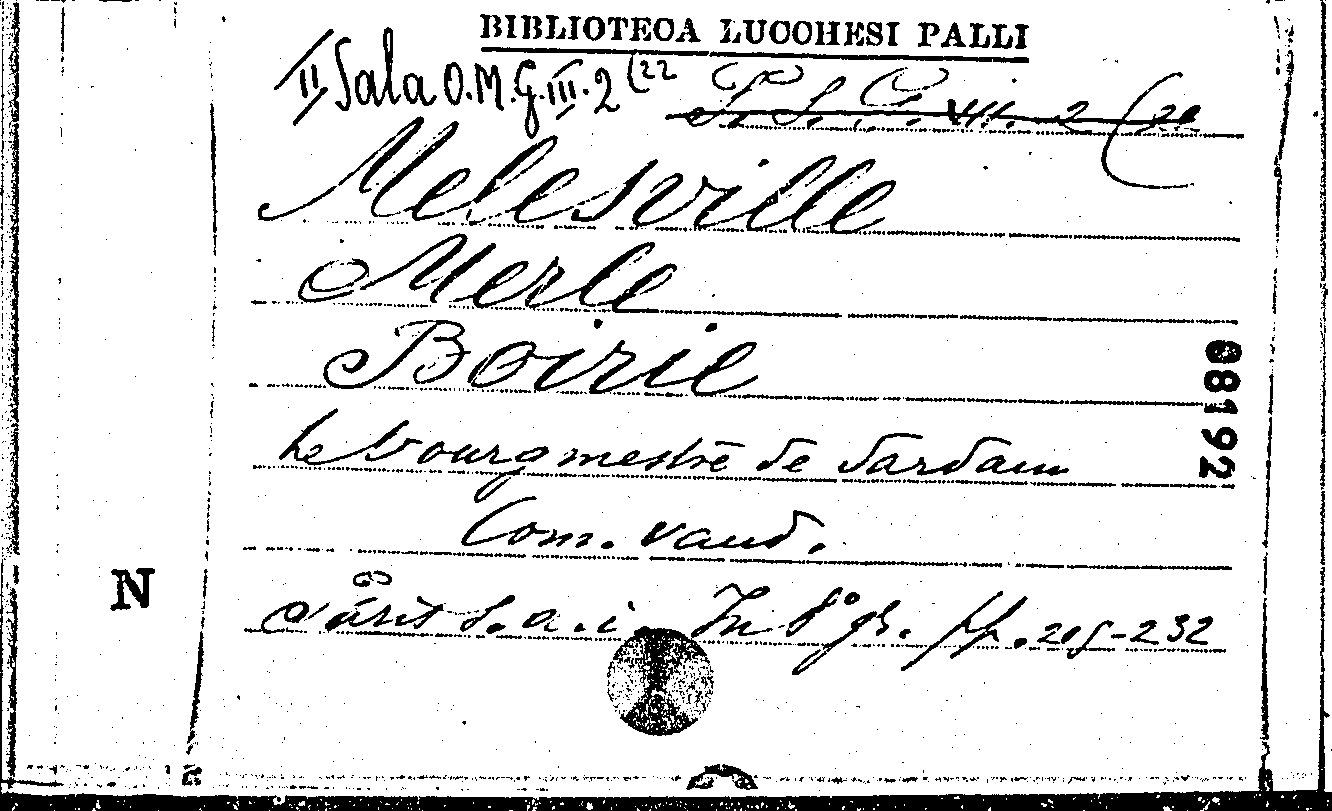 BIBLIOTECA LUCCHESI PALLI
II Sala O.M.G.III.2 (22
Melesville
Merle
Boirie
Le bourgmestre de Sardam
Com. vaud.
Paris s.a.i. In 8° gr. pp. 205-232
88192
N